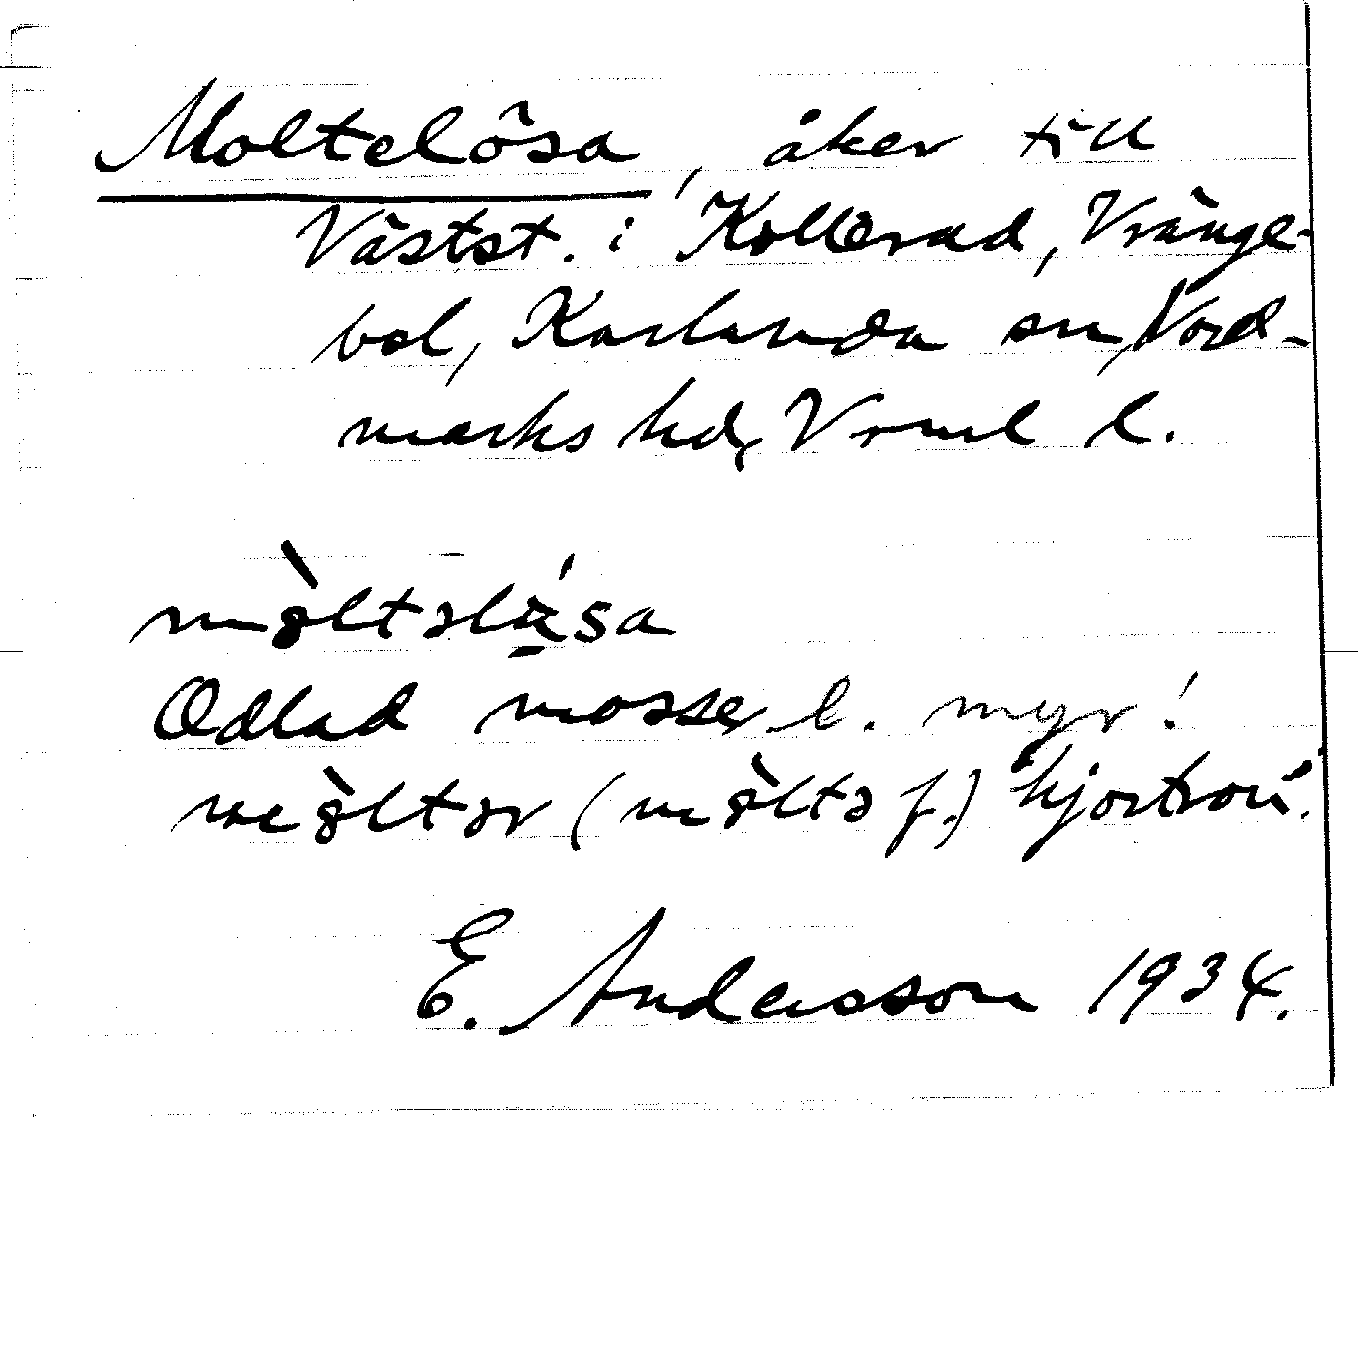 Moltelösa, åker till
Västst. i Kollerud, Vränge-
bol, Karlanda sn, Nord-
marks hd, Vrml l.
mòltəlɷ́sa
Odlad mosse l. myr!
mòltər (mòltə f.) 'hjortron'.
E. Andersson 1934.